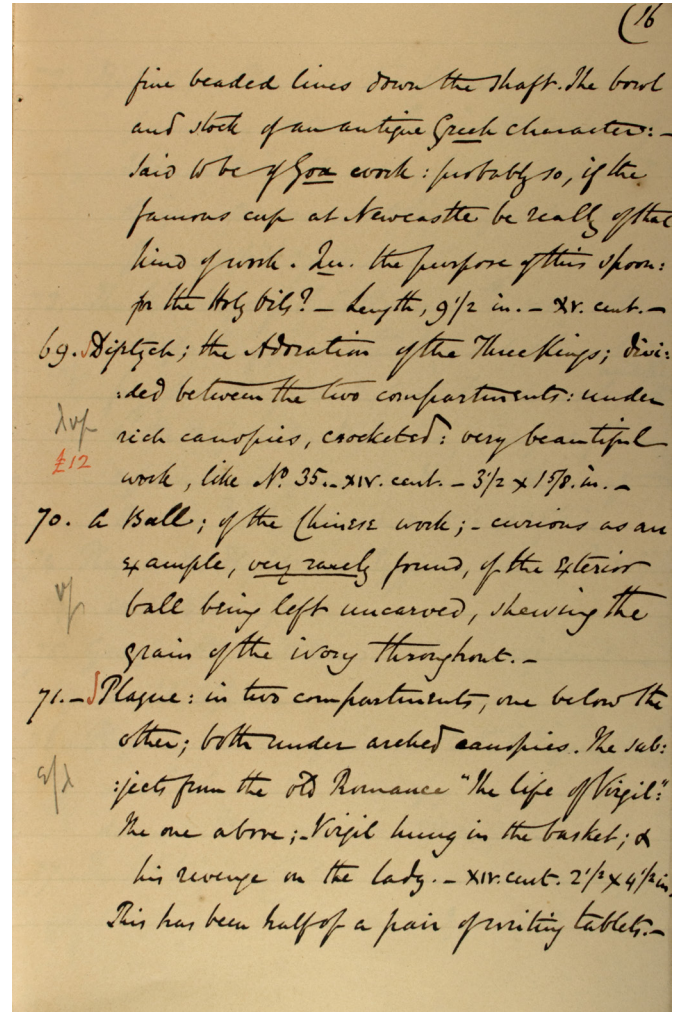 (16
five beaded lines down the shaft. The bowl
and stock of an antique Greek character: -
said to be of Goa work: probably so, if the
famous cup at Newcastle be really of that
kind of work. Qu. the purpose of this spoon:
for the Holy Oils? - Length, 9 1/2 in. - XV. cent. -
69. Diptych; the Adoration of the Three Kings; divi:
:ded between the two compartments: under
rich canopies, crocketed: very beautiful
£12
work, like No. 35. - XIV. cent. - 3 1/2 x 1 5/8. in. -
70. A Ball; of the Chinese work; - curious as an
example, very rarely found, of the exterior
ball being left uncarved, shewing the
grain of the ivory throughout. -
71. - Plaque: in two compartments, one below the
other; both under arched canopies. The sub:
:jects from the old Romance "The life of Virgil":
The one above; - Virgil hung in the basket; &
his revenge on the lady. - XIV. cent. 2 1/2 x 4 1/2 in.
This has been half of a pair of writing tablets. -